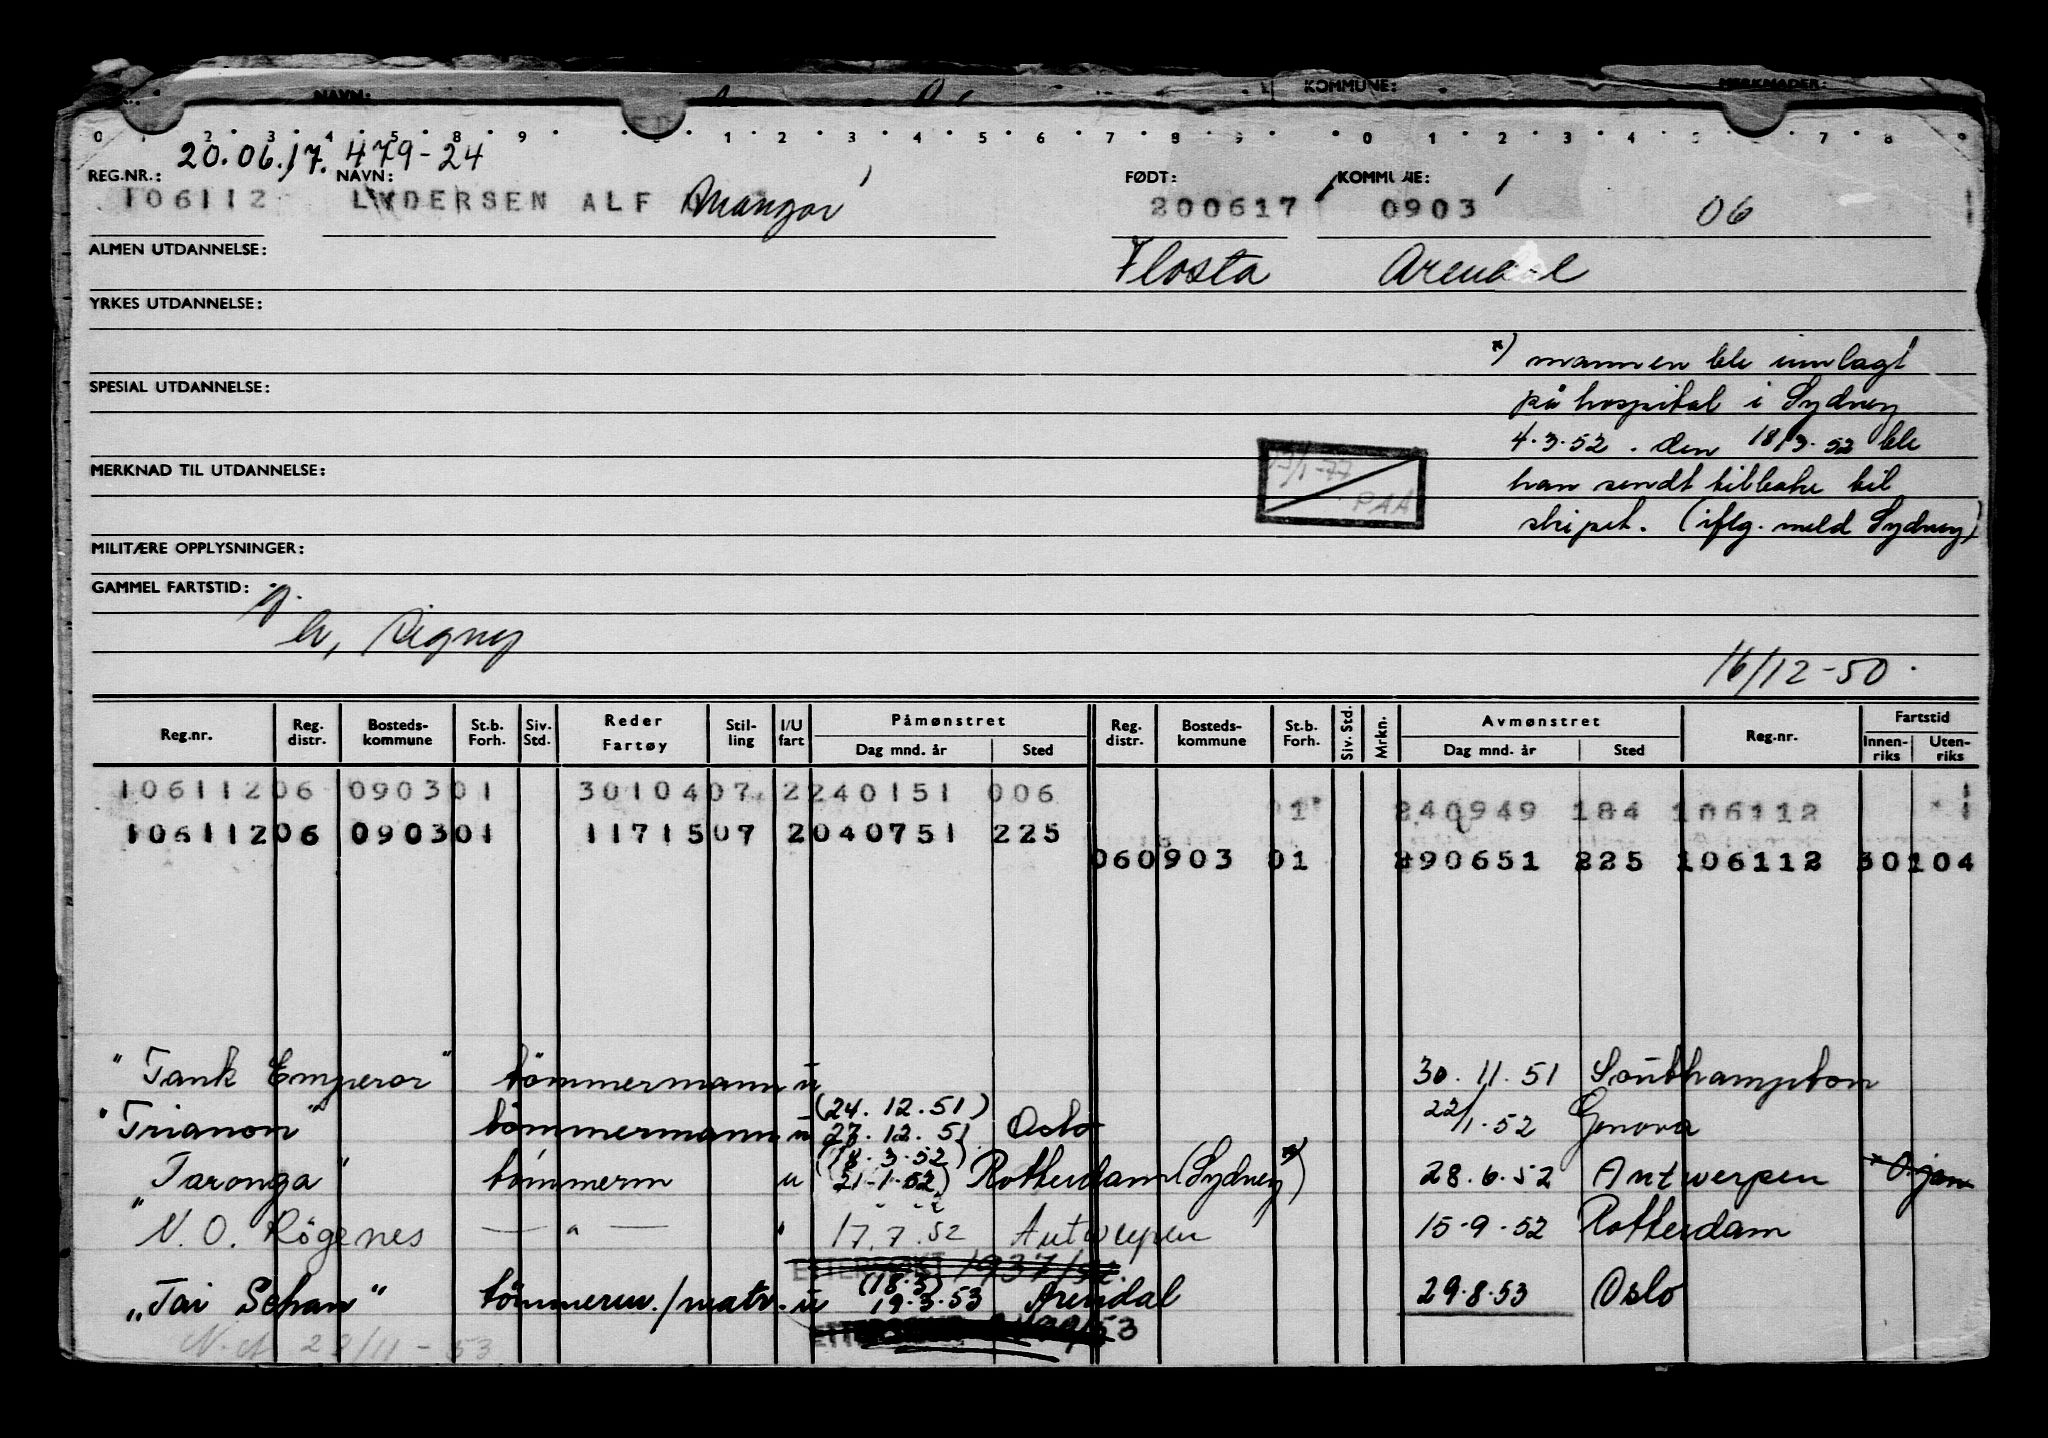 NAVN: KOMMUNE: MERKNADER:
0 1 2 3 4 5 6 7 8 9 1 2 3 4 5 6 7 8 9 0 1 2 3 4 5 6 7 8 9
20.06.17. 479-24
REG.NR.: NAVN: FØDT: KOMMUNE:
106112 LYDERSEN ALF Mangor 200617 0903 06
ALMEN UTDANNELSE: Flosta Arendal
YRKES UTDANNELSE:
*) mannen ble innlagt
SPESIAL UTDANNELSE: på hospital i Sydney
4.3.52. den 18/3.52 ble
MERKNAD TIL UTDANNELSE: 13/1-77 PAA han sendt tilbake til
skipet. (iflg. meld Sydney)
MILITÆRE OPPLYSNINGER:
GAMMEL FARTSTID:
h, Signy
16/12-50.
Reg.nr. Reg. distr. Bosteds-kommune St.b. Forh. Siv. Std. Reder Fartøy Stil-ling I/U fart Påmønstret Dag mnd. år Sted Reg. distr. Bosteds-kommune St.b. Forh. Siv. Std. Mrkn. Avmønstret Dag mnd. år Sted Reg.nr. Fartstid Innen-riks Uten-riks
106112 06 0903 01 30104 07 2 240151 006
01 240949 184 106112
106112 06 0903 01 11715 07 2 040751 225
06 0903 01 290651 225 106112 30104
"Tank Emperor" tömmermann u 30.11.51 Southampton
(24.12.51)
"Trianon" tömmermann u 27.12.51 Oslo 22/1.52 Genova
(18.3.52)
"Taronga" tömmerm u 21-1-52 Rotterdam (Sydney*) 28.6.52 Antwerpen
"N.O. Rögenes — " — " 17.7.52 Antwerpen 15-9-52 Rotterdam
ETTERSØKT 1937/52.
(18.3)
"Tai Schan" tömmerm./matr. u 19.3.53 Arendal 29.8.53 Oslo
N.A. 29/11-53